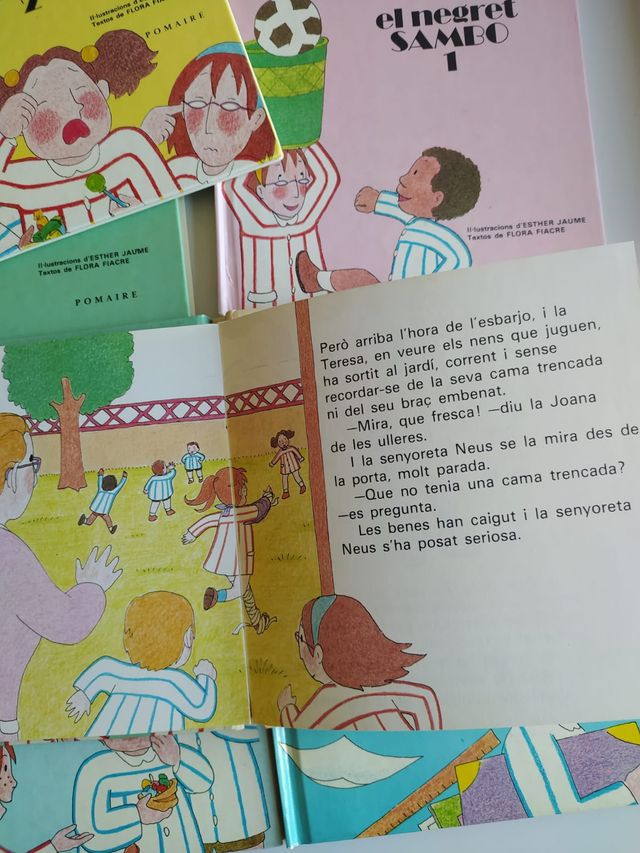 2
Il·lustracions d'ESTHER JAUME
Textos de FLORA FIACRE
POMAIRE
el negret
SAMBO
1
Il·lustracions d'ESTHER JAUME
Textos de FLORA FIACRE
Il·lustracions d'ESTHER JAUME
Textos de FLORA FIACRE
POMAIRE
Però arriba l'hora de l'esbarjo, i la
Teresa, en veure els nens que juguen,
ha sortit al jardí, corrent i sense
recordar-se de la seva cama trencada
ni del seu braç embenat.
—Mira, que fresca! —diu la Joana
de les ulleres.
I la senyoreta Neus se la mira des de
la porta, molt parada.
—Que no tenia una cama trencada?
—es pregunta.
Les benes han caigut i la senyoreta
Neus s'ha posat seriosa.